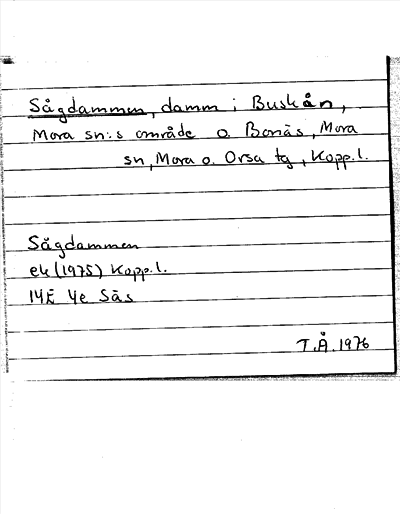 Sågdammen, damm i Buskån,
Mora sn:s område o. Bonäs, Mora
sn, Mora o. Orsa tg, Kopp.l.
Sågdammen
ek (1975) Kopp.l.
14E 4e Sås
T.Å.1976